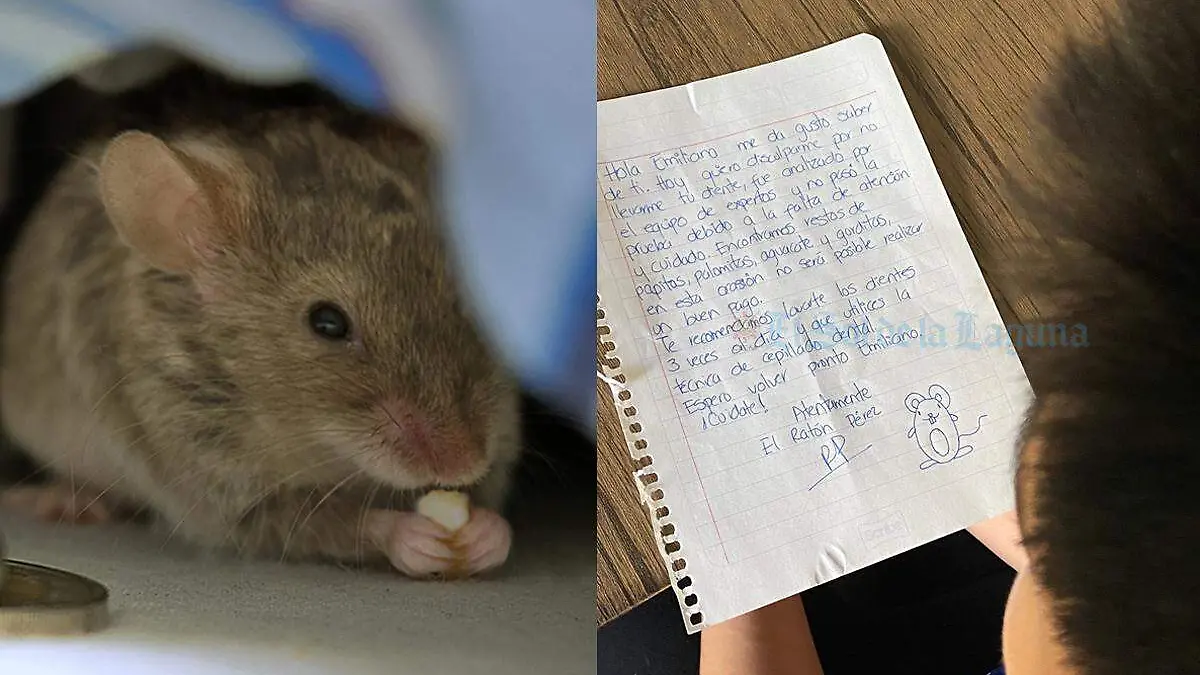 Hola Emiliano me da gusto saber
de ti. Hoy quiero disculparme por no
llevarme tu diente, fue analizado por
el equipo de expertos y no pasó la
prueba debido a la falta de atención
y cuidado. Encontramos restos de
papitas, palomitas, aguacate y gorditas,
en esta ocasión no será posible realizar
un buen pago.
Te recomendamos lavarte los dientes
3 veces al día y que utilices la
técnica de cepillado dental.
Espero volver pronto Emiliano.
¡Cuídate!
Atentamente
El Ratón Pérez
RP
El Sol de la Laguna
Scribe